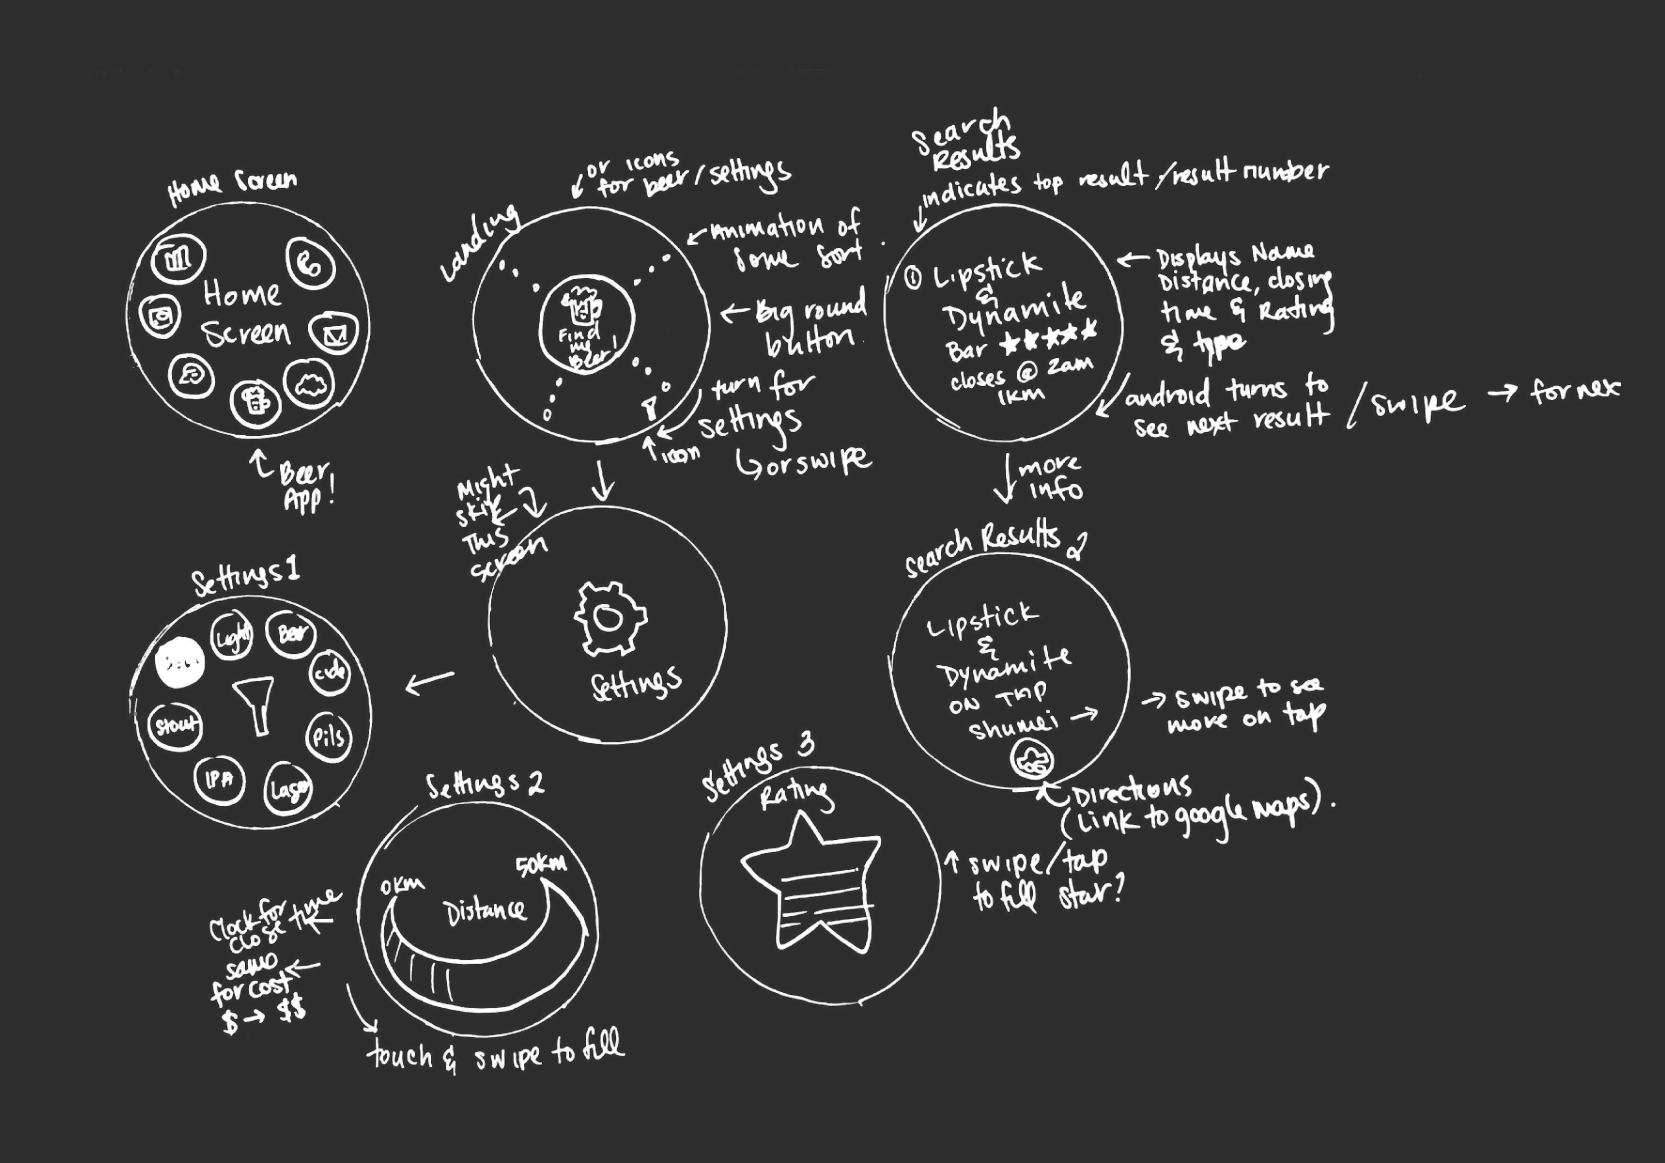 Home Screen
Home
Screen
Beer
App!
Landing
or icons
for beer/settings
Animation of
some sort
Big round
button
Find
my
Beer!
turn for
settings
↳ or swipe
icon
Search
Results
indicates top result/result number
① Lipstick
&
Dynamite
Bar ★★★★★
closes @ 2am
1km
Displays Name
Distance, closing
time & Rating
& type
android turns to
see next result / swipe → for nex
more
info
Might
skip
This
screen
Settings
Settings 1
Light
Beer
Stout
Pils
IPA
Search Results 2
Lipstick
&
Dynamite
ON TAP
Shumei →
→ swipe to see
more on tap
Directions
(Link to google maps).
Settings 2
0km
50km
Distance
Clock for
close time
same
for cost
$ → $$
touch & swipe to fill
Settings 3
Rating
↑ swipe/tap
to fill star?